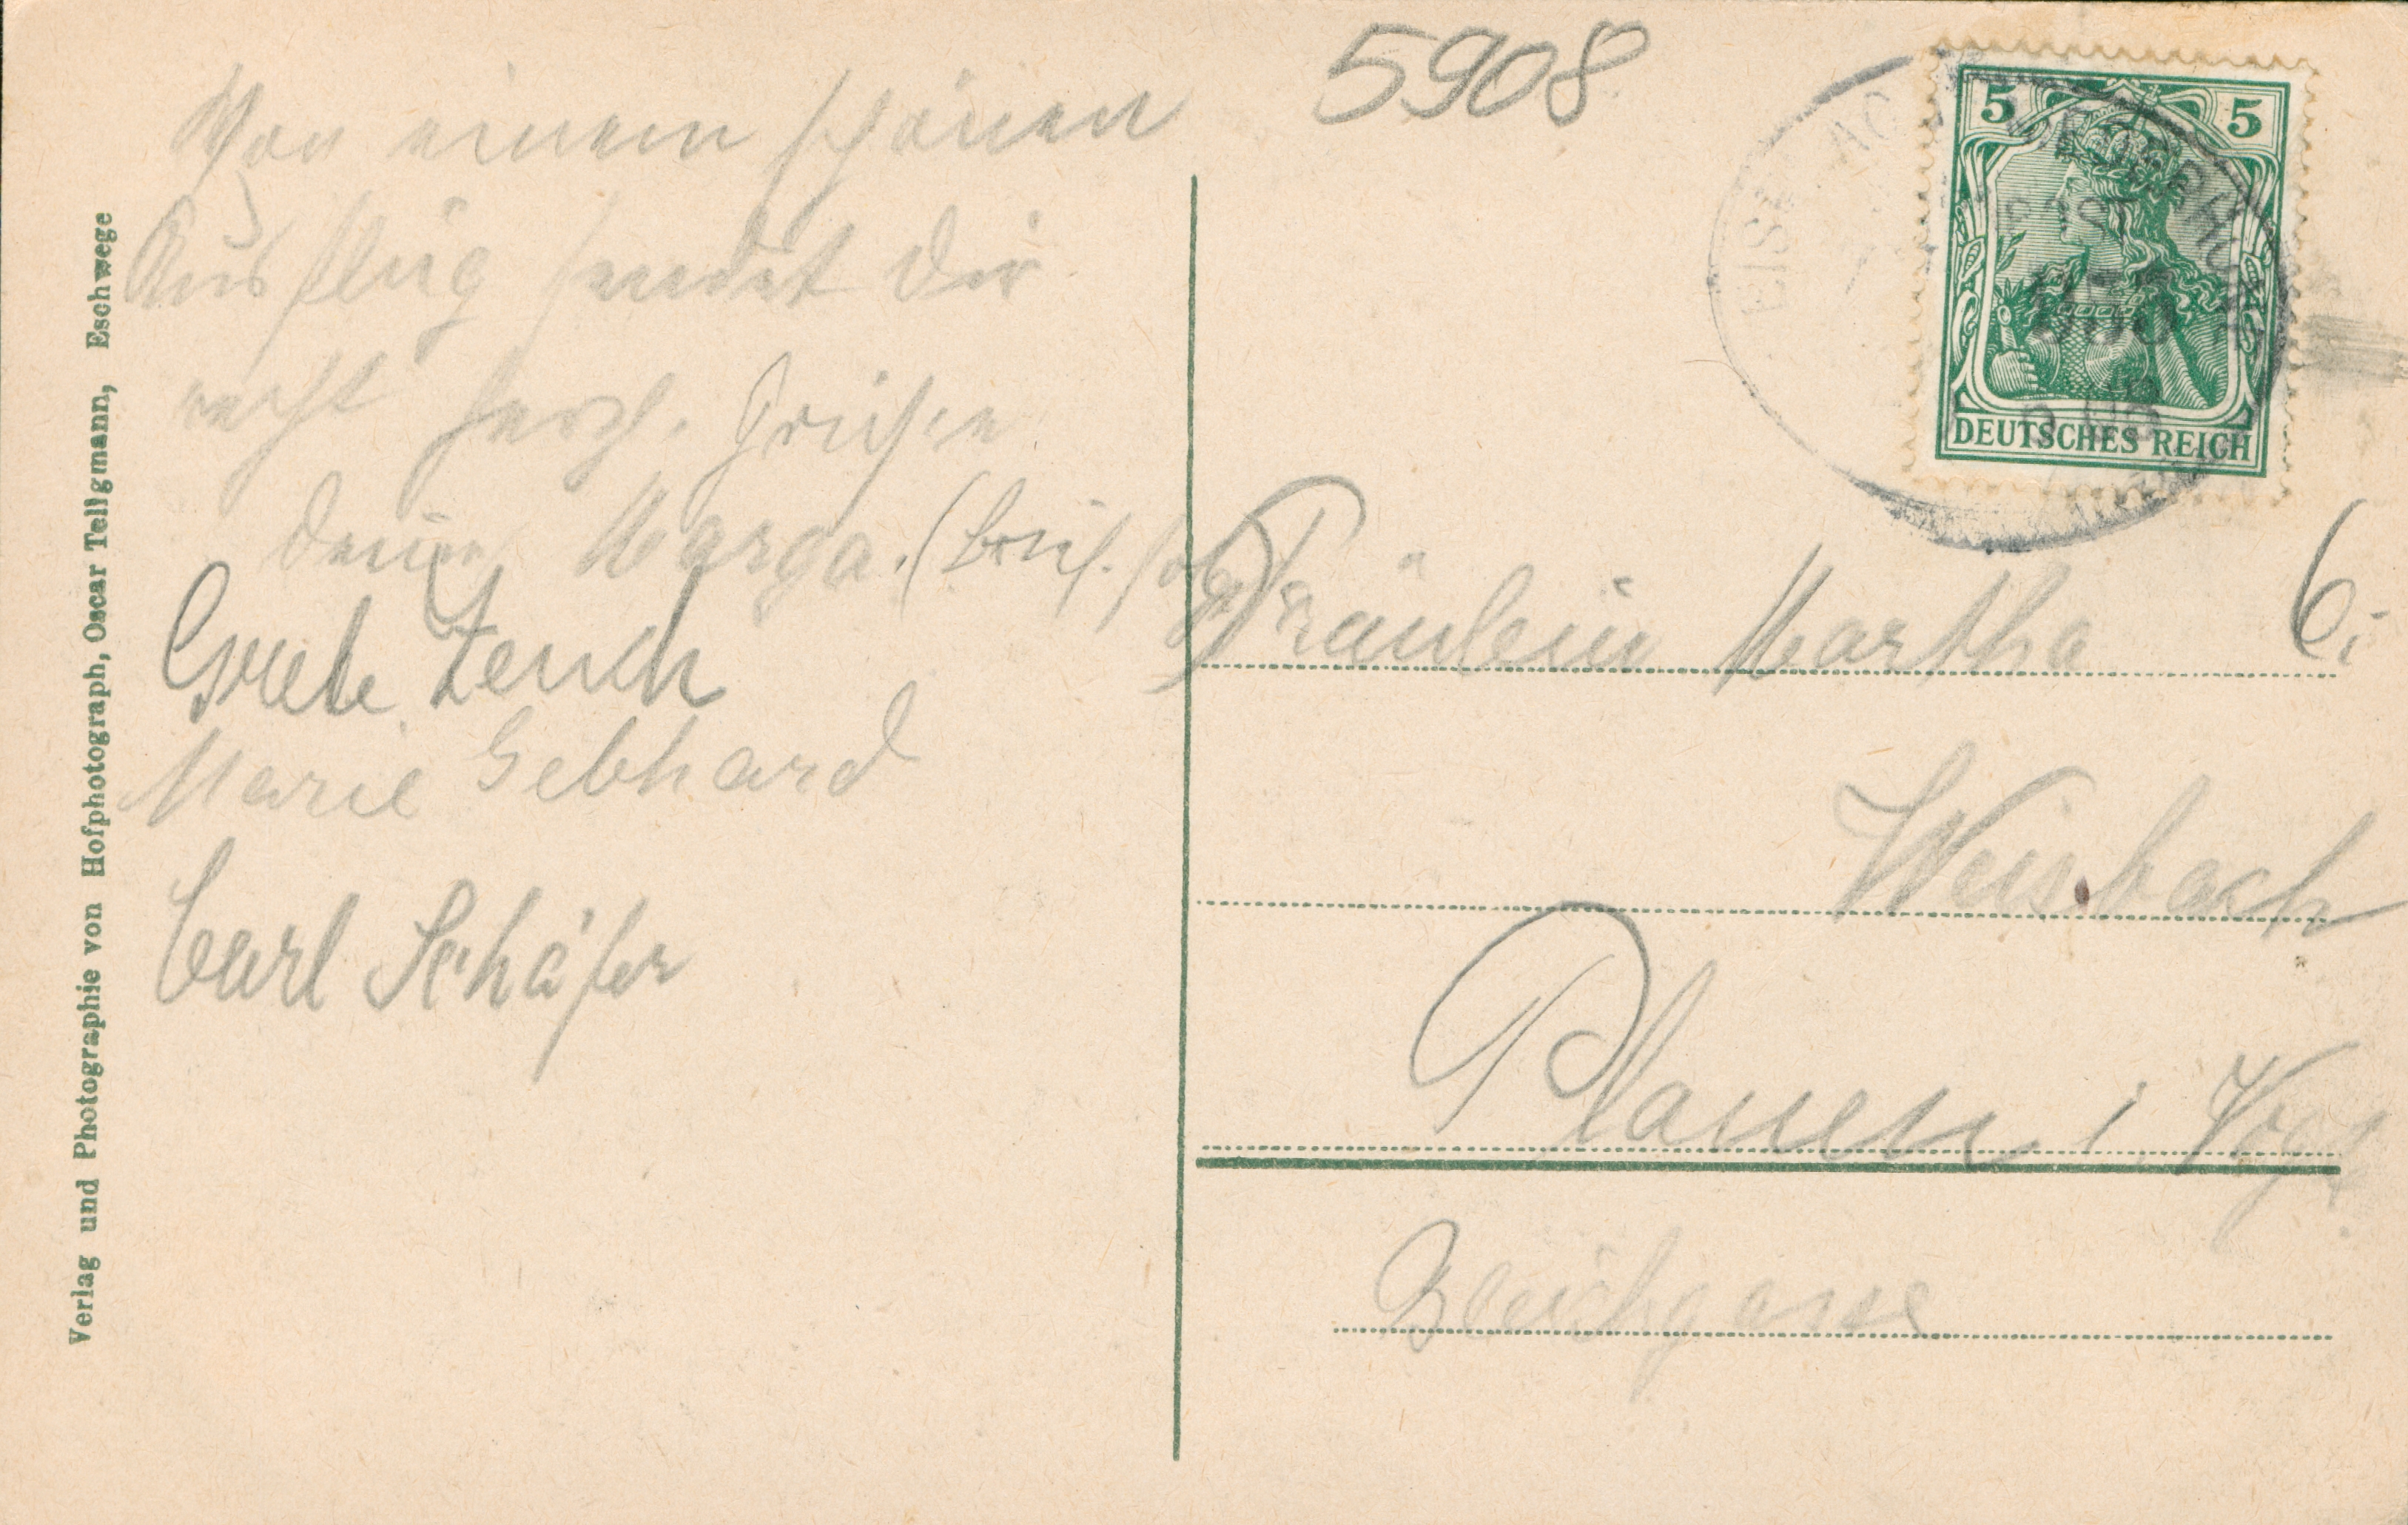 5908
Von einem schönen
Ausflug sendet Dir
recht herzl. Grüße
Deine Marga. (Brief. folgt)
Grete Zench
Marie Gebhard
Curl Schäfer
Verlag und Photographie von Hofphotograph, Oscar Tellgmann, Eschwege
5 5
DEUTSCHES REICH
Fräulein Martha
6.
Weisbach
Plauen i Vogt.
Bleichgasse